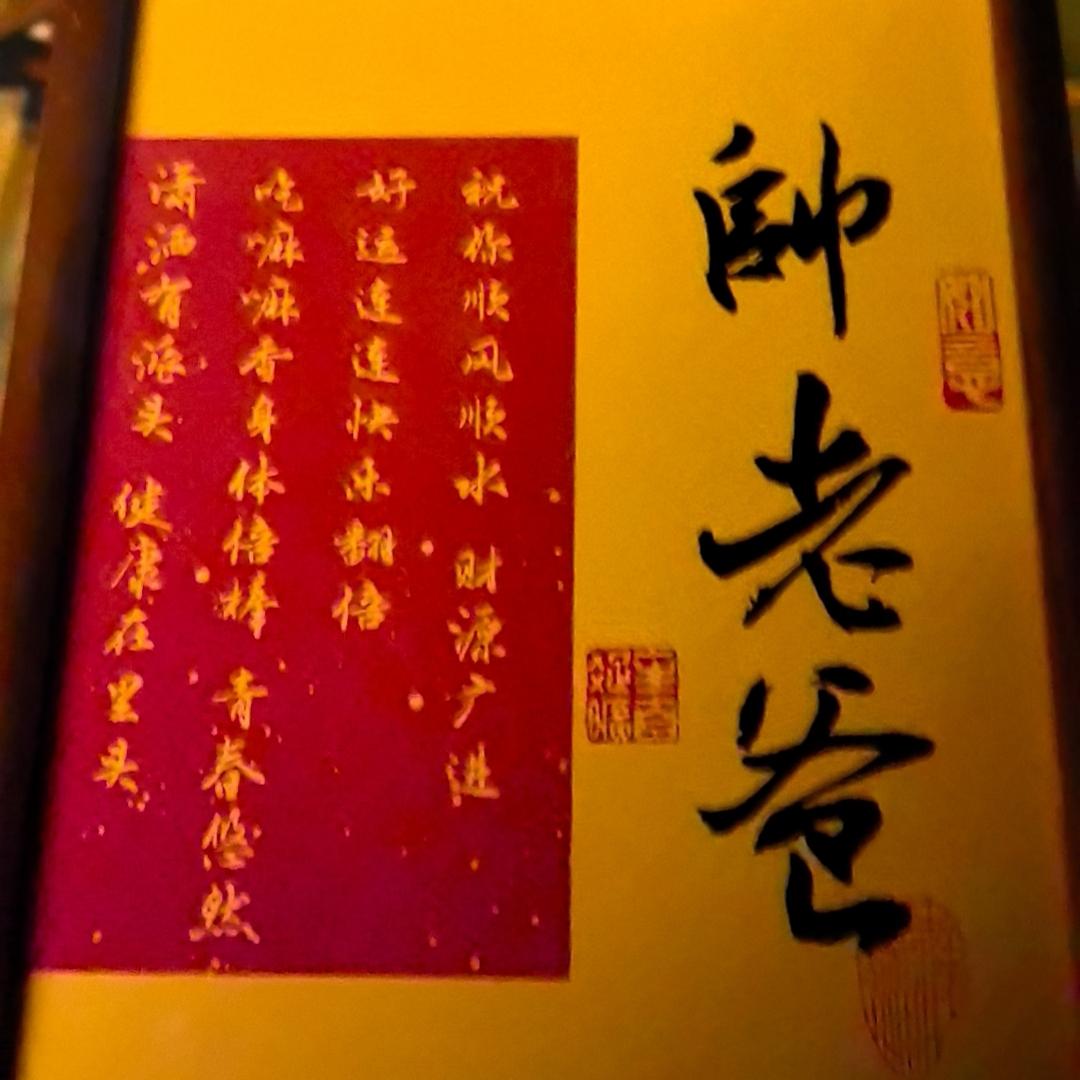 帥老爸
祝你顺风顺水 财源广进
好运连连快乐翻倍
吃嘛嘛香身体倍棒 青春悠然
潇洒有派头 健康在里头